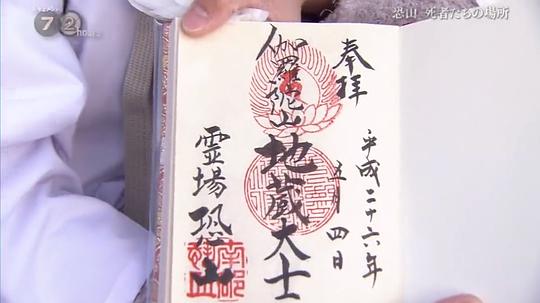 恐山 死者たちの場所
7 2
奉拝
平成二十六年
五月四日
伽羅陀山地蔵大士
霊場恐山